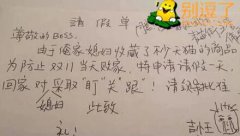 请假单
别逗了
尊敬的Boss.
由于俺家媳妇收藏了不少天猫的商品
为防止双11当天败家,特申请请假一天,
回家对媳妇采取"盯""关""跟"!请领导批准
此致
礼!